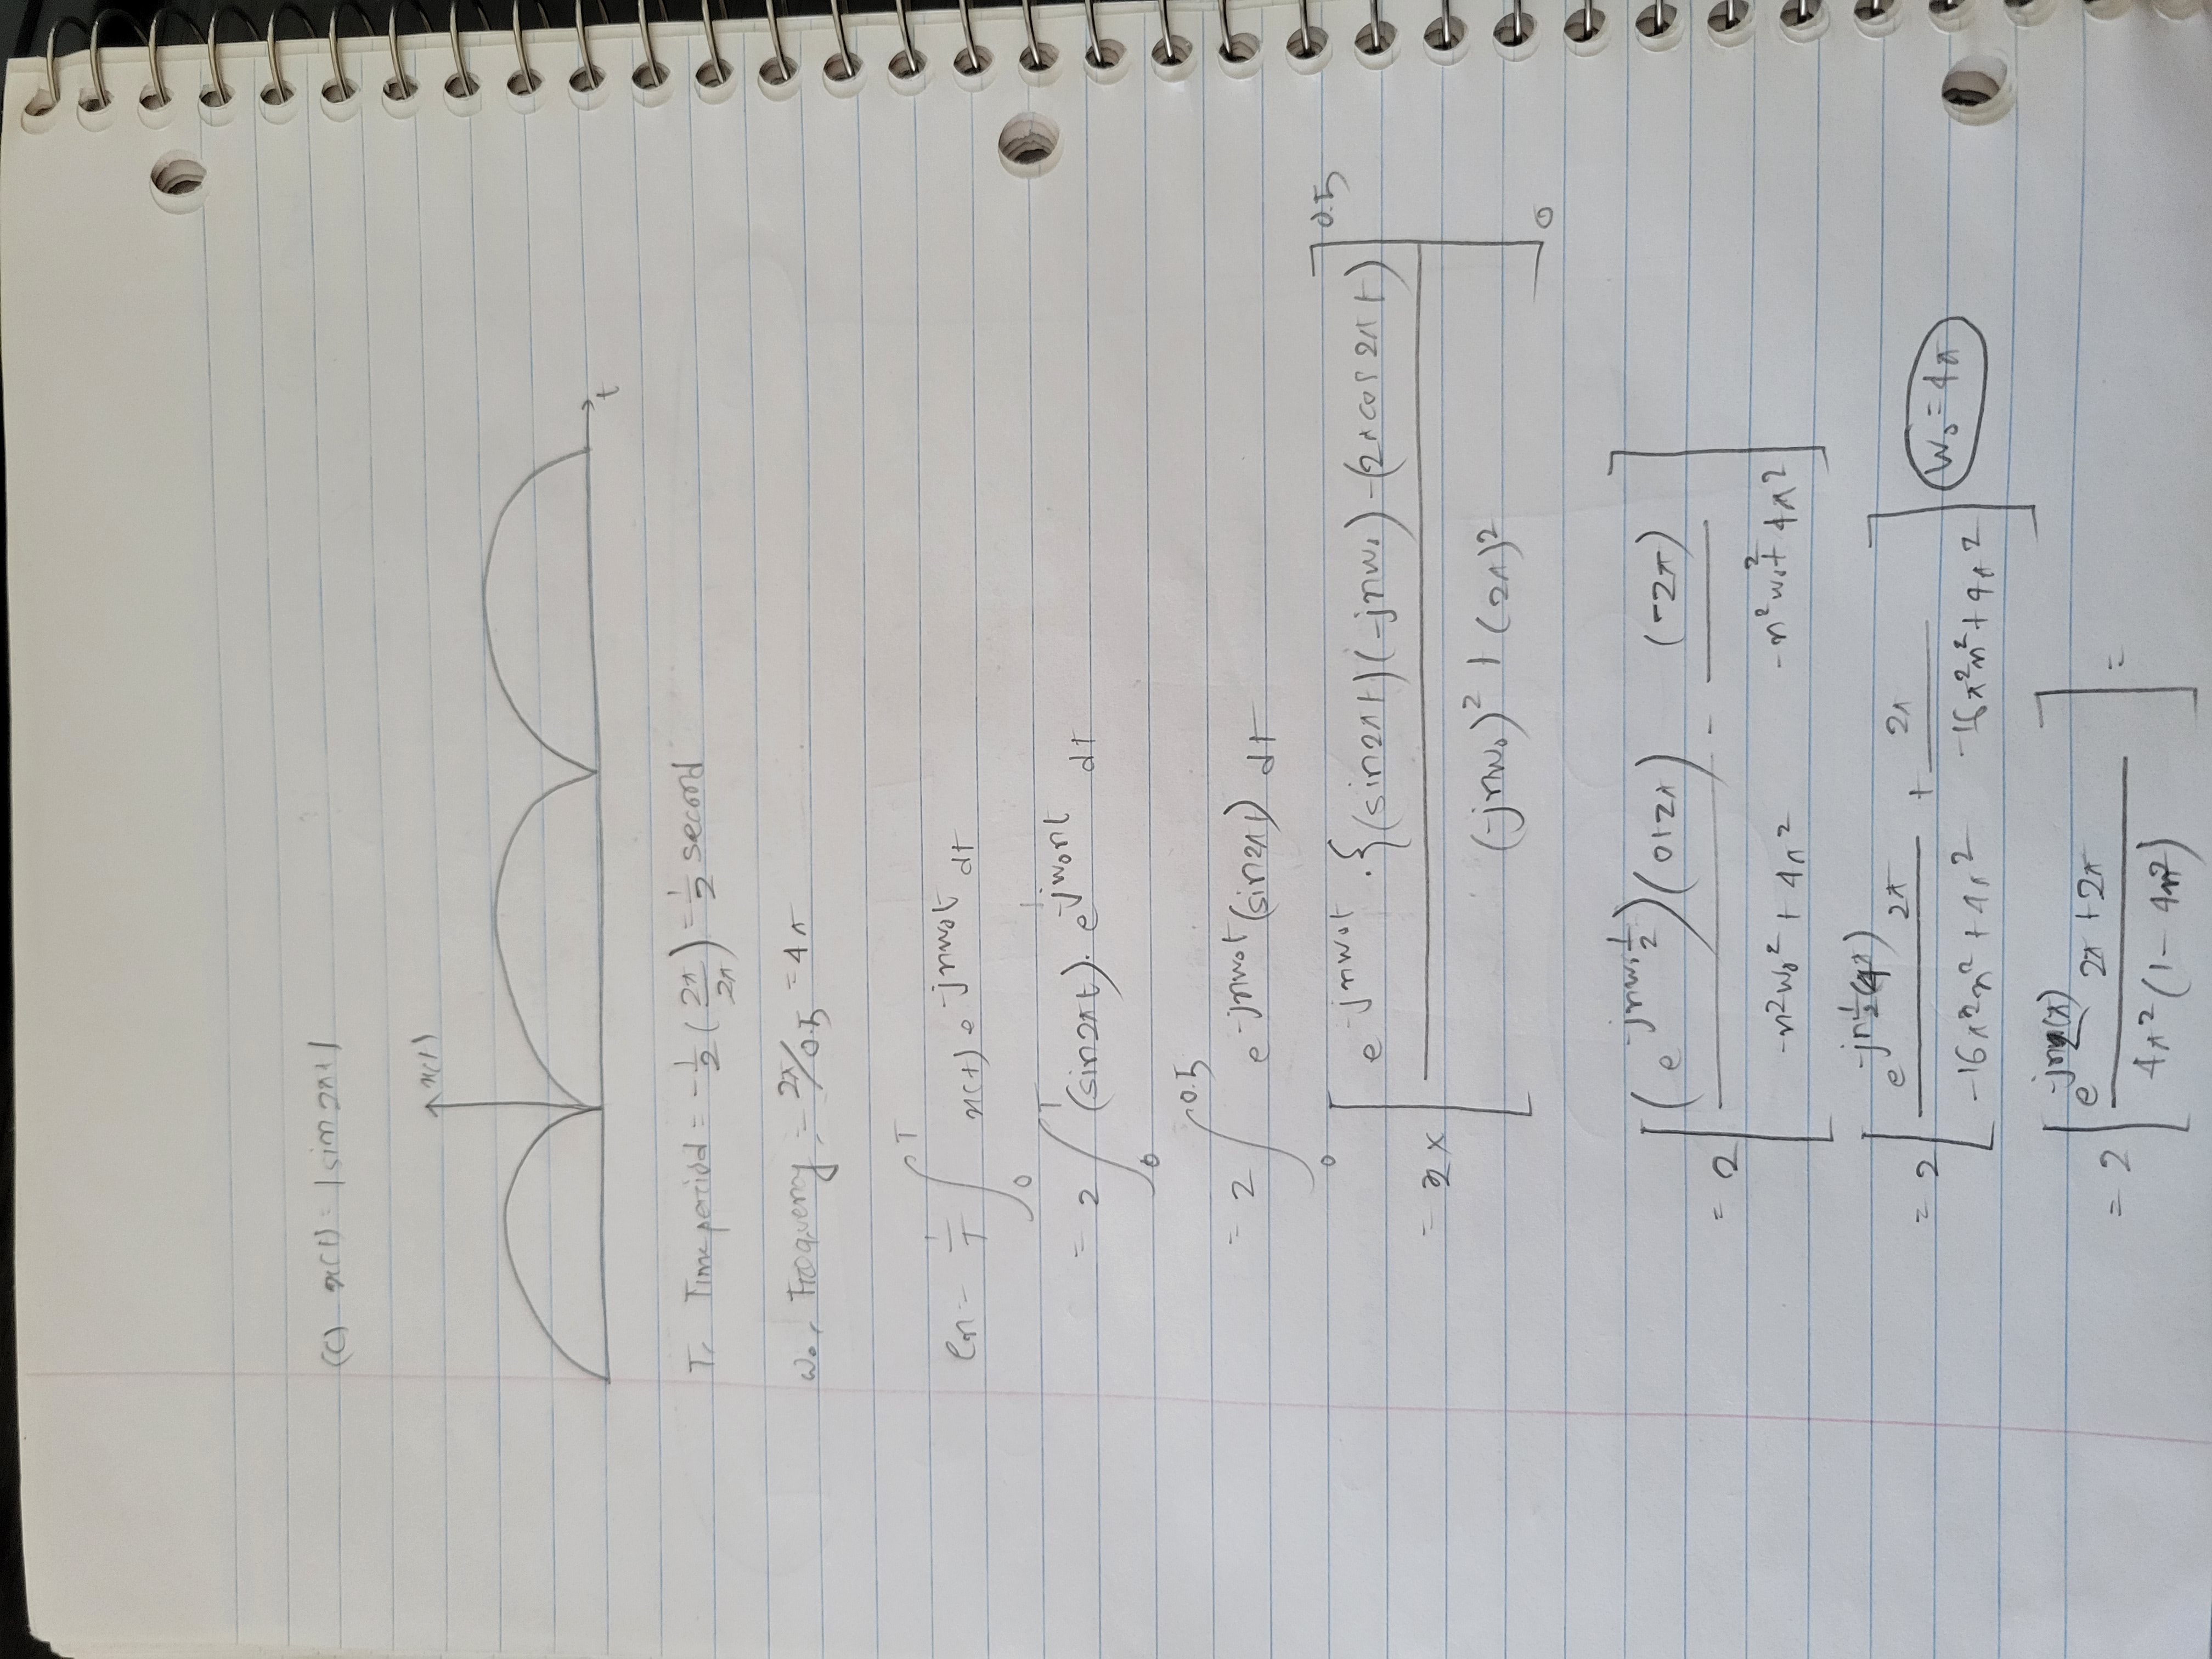 (c) x(t) = |sin 2πt|
x(t)
t
T, Time period = -1/2 (2π/2π) = 1/2 second
ω₀, Frequency, = 2π/0.5 = 4π
Cn = 1/T ∫₀^T x(t) e^{-jnω₀t} dt
= 2 ∫₀^T (sin2πt). e^{-jω₀nt} dt
= 2 ∫₀^{0.5} e^{-jnω₀t} (sin2πt) dt
= 2 × [ e^{-jnω₀t} .{(sin2πt)(-jnω₀) - (2πcos2πt) / (-jnω₀)² + (2π)² ]₀^{0.5}
= 2 [ (e^{-jnω₀ 1/2})(0+2π) / -n²ω₀² + 4π² - (-2π) / -n²ω₀² + 4π² ]
= 2 [ e^{-jn 1/2 (4π)} 2π / -16π²n² + 4π² + 2π / -16π²n² + 4π² ] ω₀ = 4π
= 2 [ e^{-jn2(π)} 2π + 2π / 4π² (1 - 4n²) ] =